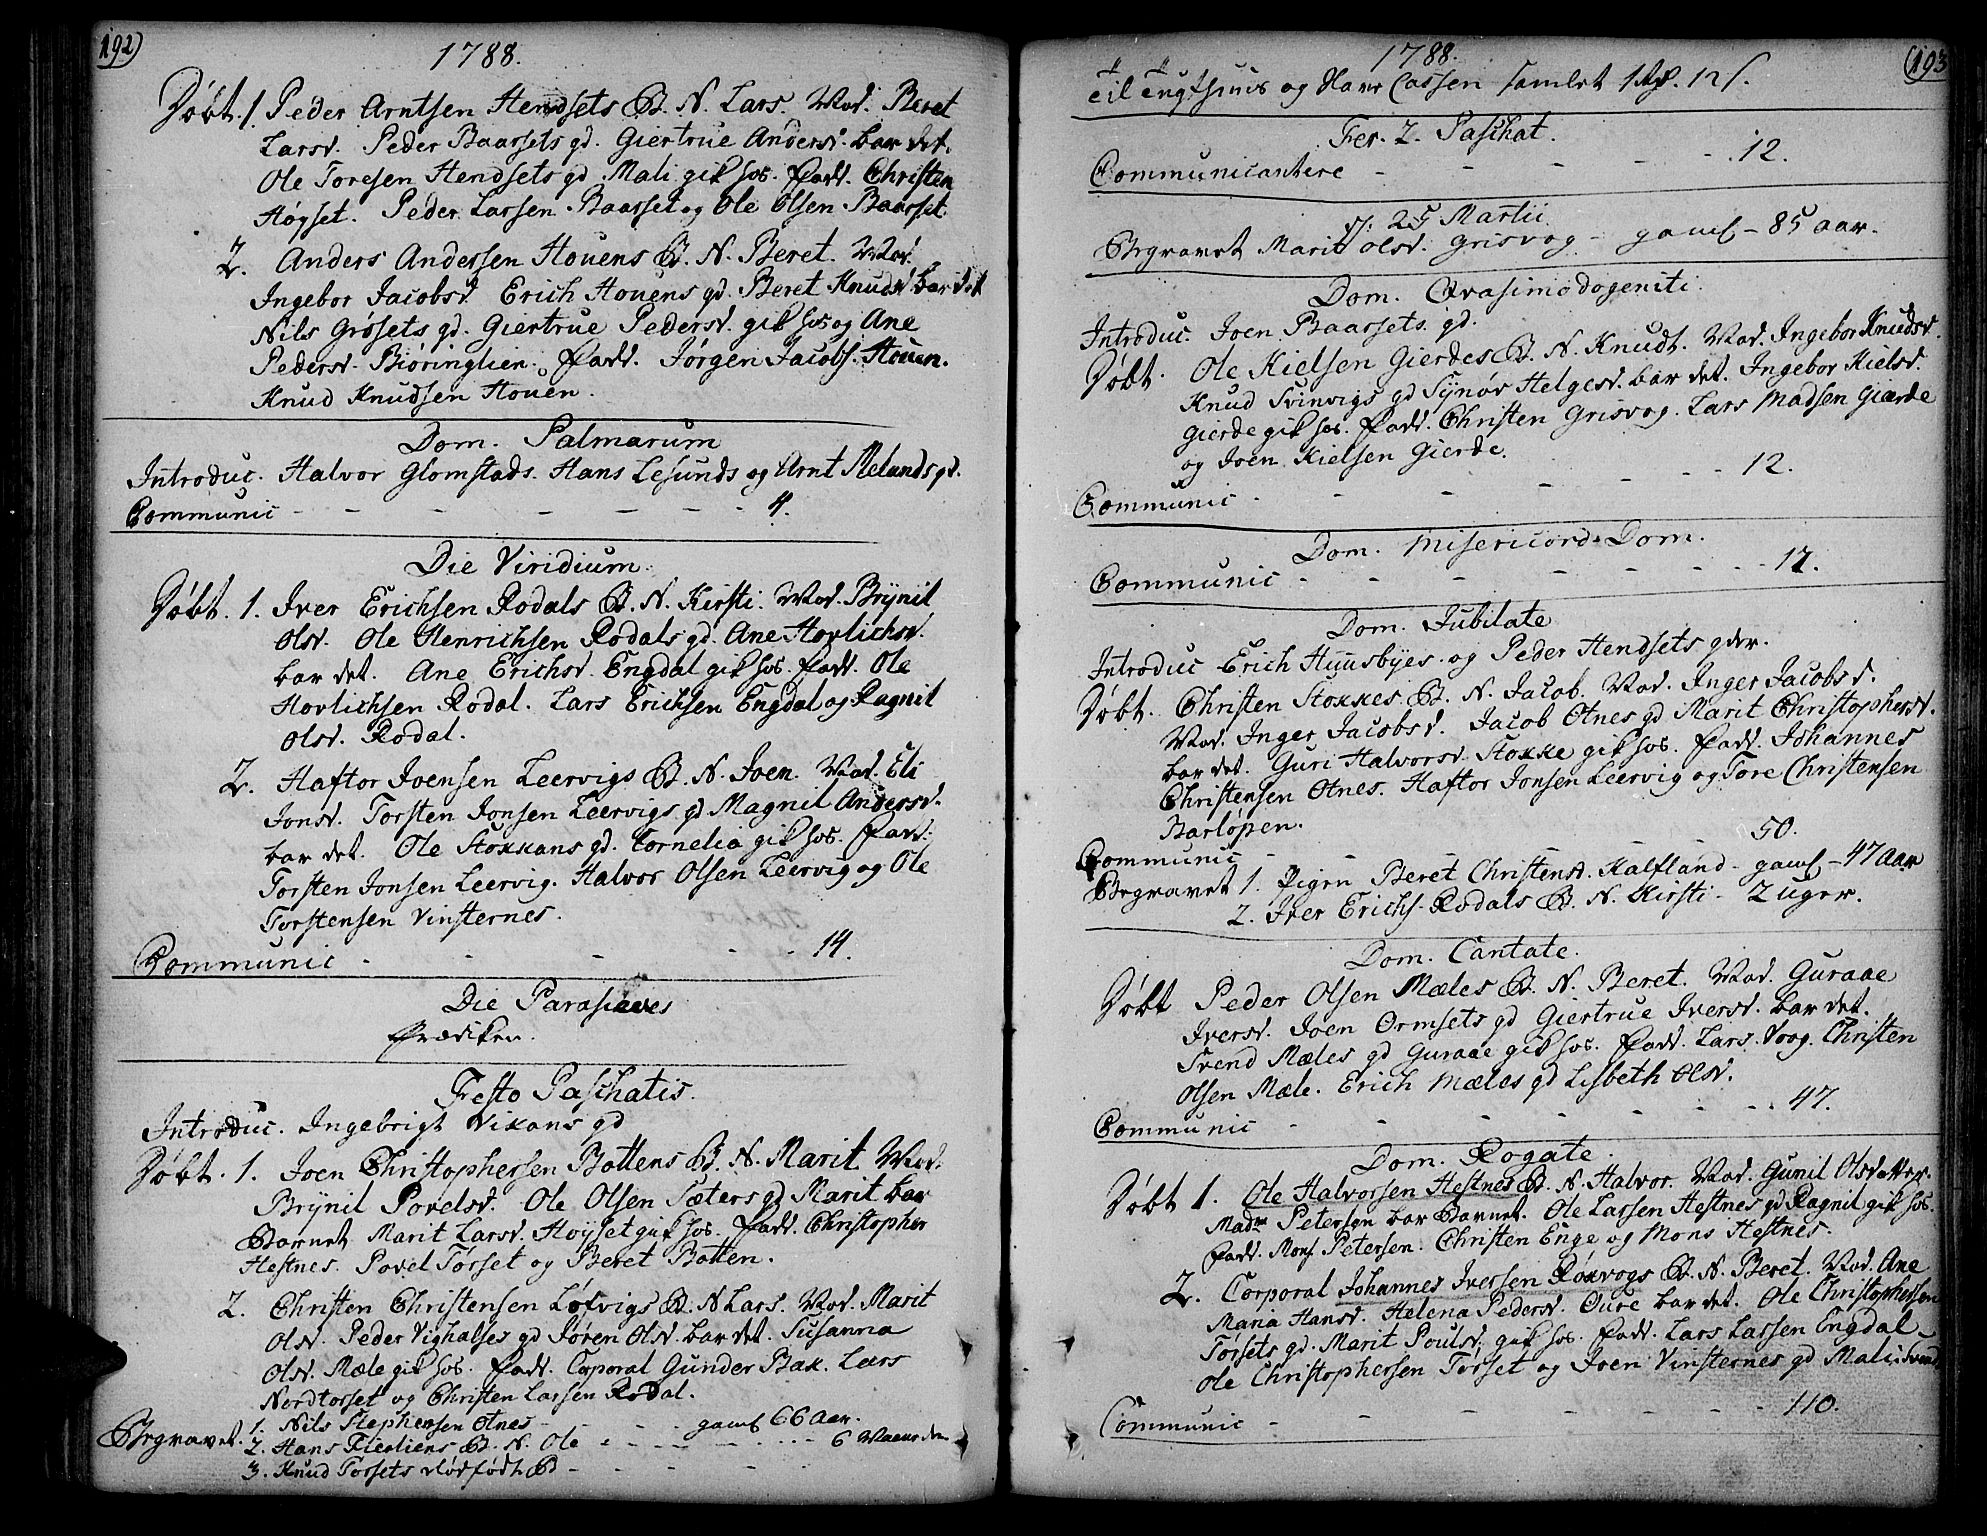 192)
1788.
Døbt. 1. Peder Arntsen Hendsets B. N. Lars. Mod. Beret
Larsd. Peder Baarsets gd. Giertrue Andersd. bar det.
Ole Toresen Hendsets gd. Mali gik hos. Fadd. Christen
Høyset. Peder Larsen Baarset og Ole Olsen Baarset.
2. Anders Andersen Houens B. N. Beret. Mod.
Ingebor Jacobsd. Erich Houens gd. Beret Knudsd bar det
Nils Grøsets gd. Giertrue Pedersd. gik hos og Ane
Pedersd. Biøringlien. Fadd. Jørgen Jacobs. Houen.
Knud Knudsen Houen.
Dom. Palmarum
Introduc. Halvor Glomstads. Hans Lesunds og Arnt Melands gd.
Communic - - - - - - - 4.
Die Viridium.
Døbt. 1. Iver Erichsen Rodals B. N. Kirsti. Mod. Brynil
Olsd. Ole Henrichsen Rodals gd. Ane Hovlichsd.
bar det. Ane Erichsd. Engdal gik hos. Fadd. Ole
Hovlichsen Rodal. Lars Erichsen Engdal og Ragnil
Olsd. Rodal.
2. Haftor Joensen Leervigs B. N. Joen. Mod. Eli
Jonsd. Torsten Jonsen Leervigs gd Magnil Andersd.
bar det. Ole Stokkans gd. Cornelia gik hos. Fadd.
Torsten Jonsen Leervig. Halvor Olsen Leervig og Ole
Torstensen Vinsternes.
Communic - - - - - 14.
Die Parasceves
Prædiken.
Festo Paschatis.
Introduc. Ingebrigt Vikans gd
Døbt. 1. Joen Christophersen Bottens B. N. Marit Mod.
Brynil Povelsd. Ole Olsen Sæters gd Marit bar
Barnet Marit Larsd. Høyset gik hos. Fadd. Christopher
Hestnes. Povel Torset og Beret Botten.
2. Christen Christensen Løfvigs B. N Lars. Mod. Marit
Olsd. Peder Vighalses gd Søren Olsd. bar det. Susanna
Olsd. Mæle gik hos. Fadd. Corporal Gunder Bak. Lars
Nordtorset og Christen Larsen Rodal.
Begravet. 1. Nils Stephensen Otnes - - gaml 66 Aar.
2. Hans B. N. Ole - - - - 6 Maaneder
3. Knud Torsets dødfødt B - - - -
193
1788.
til Tugthuus og Have Cassen samlet 1 Rd. 12 s.
Fer. 2. Paschat.
Communicantere - - - - 12.
d. 25 Martii
Begravet Marit Olsd. Grisvog - gaml - 85 aar.
Dom. Qvasimodogeniti.
Introduc. Joen Baarsets gd.
Døbt. Ole Kielsen Gierdes B. N. Knudt. Mod. Ingebor Knudsd.
Knud Svinvigs gd Synøv Helgesd. bar det. Ingebor Kielsd.
Gierde gik hos. Fadd. Christen Grisvog. Lars Madsen Gierde
og Joen Kielsen Gierde.
Communic - - - - - 12.
Dom. Misericord. Dom.
Communic - - - - - - 17.
Dom. Jubilate
Introduc Erich Huusbyes og Peder Hendsets gder.
Døbt. Christen Stokkes B. N. Jacob. Mod. Inger Jacobsd.
Mod. Inger Jacobsd. Jacob Otnes gd Marit Christophersd.
bar det. Guri Halvorsd. Stokke gik hos. Fadd. Johannes
Christensen Otnes. Haftor Jonsen Leervig og Tore Christensen
Barløpen.
Communic - - - - - 50.
Begravet 1. Pigen Beret Christensd. Kalfland - gaml - 47 Aar
2. Iver Erichs. Rodals B. N. Kirsti - 2 uger.
Dom. Cantate.
Døbt Peder Olsen Mæles B. N. Beret. Mod. Guraae
Iversd. Joen Ormsets gd Giertrue Iversd. bar det.
Svend Mæles gd Guraae gik hos. Fadd. Lars Voog. Christen
Olsen Mæle. Erich Mæles gd Lisbeth Olsd.
Communic - - - - - - 47.
Dom. Rogate.
Døbt 1. Ole Halvorsen Hestnes B. N. Halvor. Mod. Gunil Olsdatter.
Madme Petersen bar Barnet. Ole Larsen Hestnes gd Ragnil gik hos.
Fadd. Mons. Petersen. Christen Enge og Mons Hestnes.
2. Corporal Johannes Iversen Røkvogs B. N. Beret. Mod. Ane
Maria Hansd. Helena Pedersd. Øure bar det. Ole Christophersen
Torsets gd. Marit Poulsd. gik hos. Fadd. Lars Larsen Engdal -
Ole Christophersen Torset og Joen Vinsternes gd Mali
Communic - - - - - - 110.